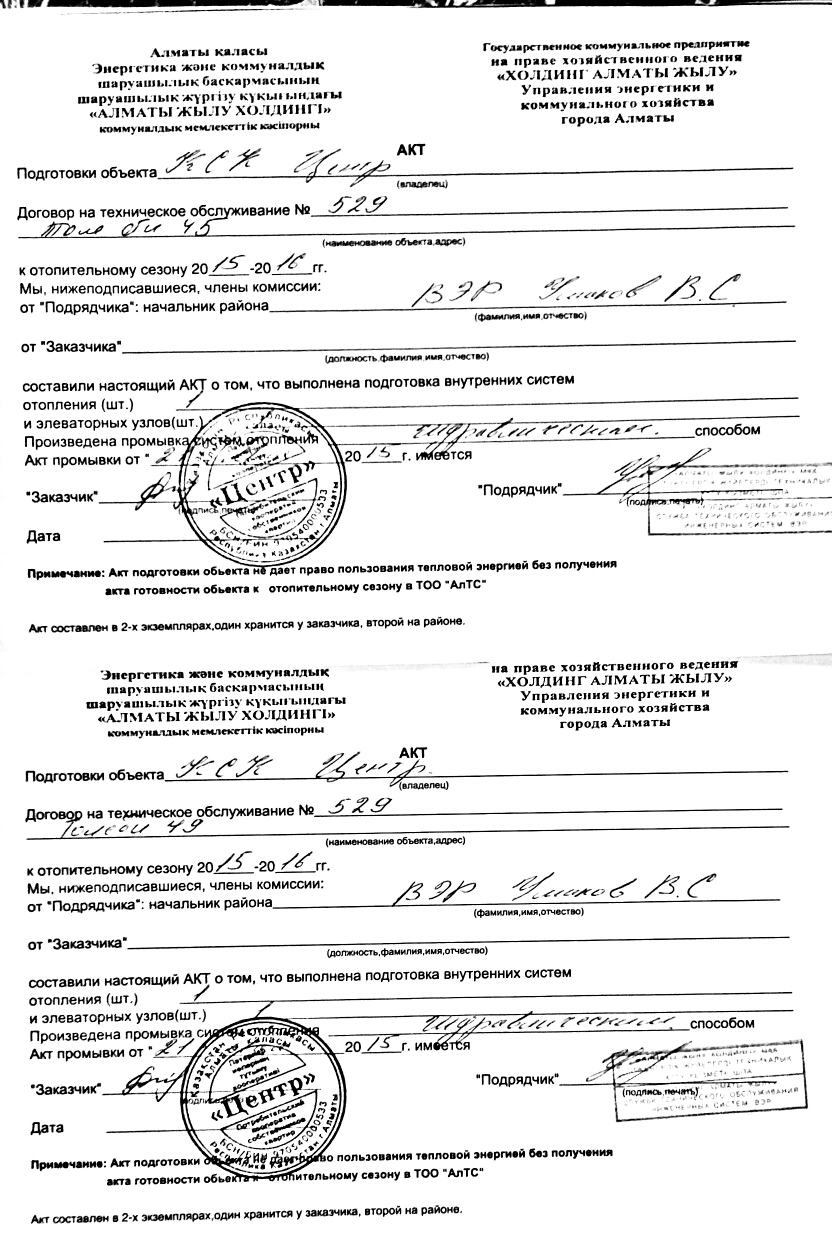 Алматы қаласы
Энергетика және коммуналдық
шаруашылық басқармасының
шаруашылық жүргізу құқығындағы
«АЛМАТЫ ЖЫЛУ ХОЛДИНГІ»
коммуналдық мемлекеттік кәсіпорны
Государственное коммунальное предприятие
на праве хозяйственного ведения
«ХОЛДИНГ АЛМАТЫ ЖЫЛУ»
Управления энергетики и
коммунального хозяйства
города Алматы
АКТ
Подготовки объекта КСК Центр
(владелец)
Договор на техническое обслуживание № 529
Толе би 45
(наименование объекта,адрес)
к отопительному сезону 2015-2016гг.
Мы, нижеподписавшиеся, члены комиссии:
от "Подрядчика": начальник района ВЭР В.С.
(фамилия,имя,отчество)
от "Заказчика"
(должность,фамилия,имя,отчество)
составили настоящий АКТ о том, что выполнена подготовка внутренних систем
отопления (шт.) 1
и элеваторных узлов(шт.)
Произведена промывка систем отопления гидравлическим способом
Акт промывки от "21 2015г. имеется
"Заказчик"
(подпись,печать)
"Подрядчик"
(подпись,печать)
Дата
«Центр»
Потребительский
кооператив
собственников
квартир
БСН/БИН 970540000533
Республика Казахстан г.Алматы
СЛУЖБА ТЕХНИЧЕСКОГО ОБСЛУЖИВАНИЯ
ИНЖЕНЕРНЫХ СИСТЕМ ВЭР
Примечание: Акт подготовки обьекта не дает право пользования тепловой энергией без получения
акта готовности обьекта к отопительному сезону в ТОО "АлТС"
Акт составлен в 2-х экземплярах,один хранится у заказчика, второй на районе.
Энергетика және коммуналдық
шаруашылық басқармасының
шаруашылық жүргізу құқығындағы
«АЛМАТЫ ЖЫЛУ ХОЛДИНГІ»
коммуналдық мемлекеттік кәсіпорны
на праве хозяйственного ведения
«ХОЛДИНГ АЛМАТЫ ЖЫЛУ»
Управления энергетики и
коммунального хозяйства
города Алматы
АКТ
Подготовки объекта КСК Центр.
(владелец)
Договор на техническое обслуживание № 529
Толеби 49
(наименование объекта,адрес)
к отопительному сезону 2015-2016гг.
Мы, нижеподписавшиеся, члены комиссии:
от "Подрядчика": начальник района ВЭР В.С
(фамилия,имя,отчество)
от "Заказчика"
(должность,фамилия,имя,отчество)
составили настоящий АКТ о том, что выполнена подготовка внутренних систем
отопления (шт.) 1
и элеваторных узлов(шт.) 1
Произведена промывка систем отопления гидравлическим способом
Акт промывки от "21 2015г. имеется
"Заказчик"
"Подрядчик"
(подпись,печать)
Дата
Қазақстан Республикасы
Алматы қаласы
Пәтерлер
иелерінің
тұтыну
кооперативі
«Центр»
Потребительский
кооператив
собственников
квартир
БСН/БИН 970540000533
Республика Казахстан г.Алматы
СЛУЖБА ТЕХНИЧЕСКОГО ОБСЛУЖИВАНИЯ
ИНЖЕНЕРНЫХ СИСТЕМ ВЭР
Примечание: Акт подготовки обьекта не дает право пользования тепловой энергией без получения
акта готовности обьекта к отопительному сезону в ТОО "АлТС"
Акт составлен в 2-х экземплярах,один хранится у заказчика, второй на районе.